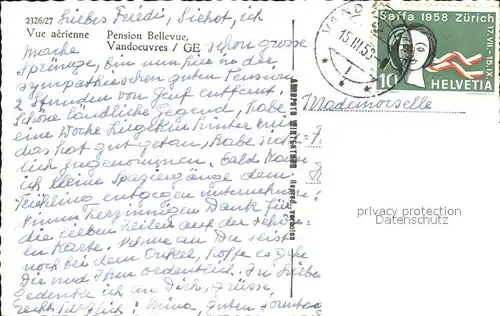 2326/27
Liebes Friedi, Siehst, ich
Vue aérienne
Pension Bellevue,
Vandoeuvres / GE
mache schon grosse
Sprünge, bin nun hier in der
sympathischen guten Pension
2 Stunden von Genf entfernt.
Schöne ländliche Gegend, habe
eine Woche hinter mir
das hat gut getan, habe
lich zugenommen. bald kann
ich kleine Spaziergänge dem
Frühling entgegen unternehmen
Nimm herzinnigen Dank für
die lieben Zeilen auf der schö-
nen Karte. Nehme an Du seist
noch bei dem Onkel, hoffe es gehe
Dir und Ihm ordentlich. In Liebe
gedenke ich an Dich, grüsse
recht herzlich: Mina, guten Sonntag
Saffa 1958 Zürich
17.VII.-15.IX.
10
HELVETIA
15.III.58
1
Mademoiselle
privacy protection
Datenschutz